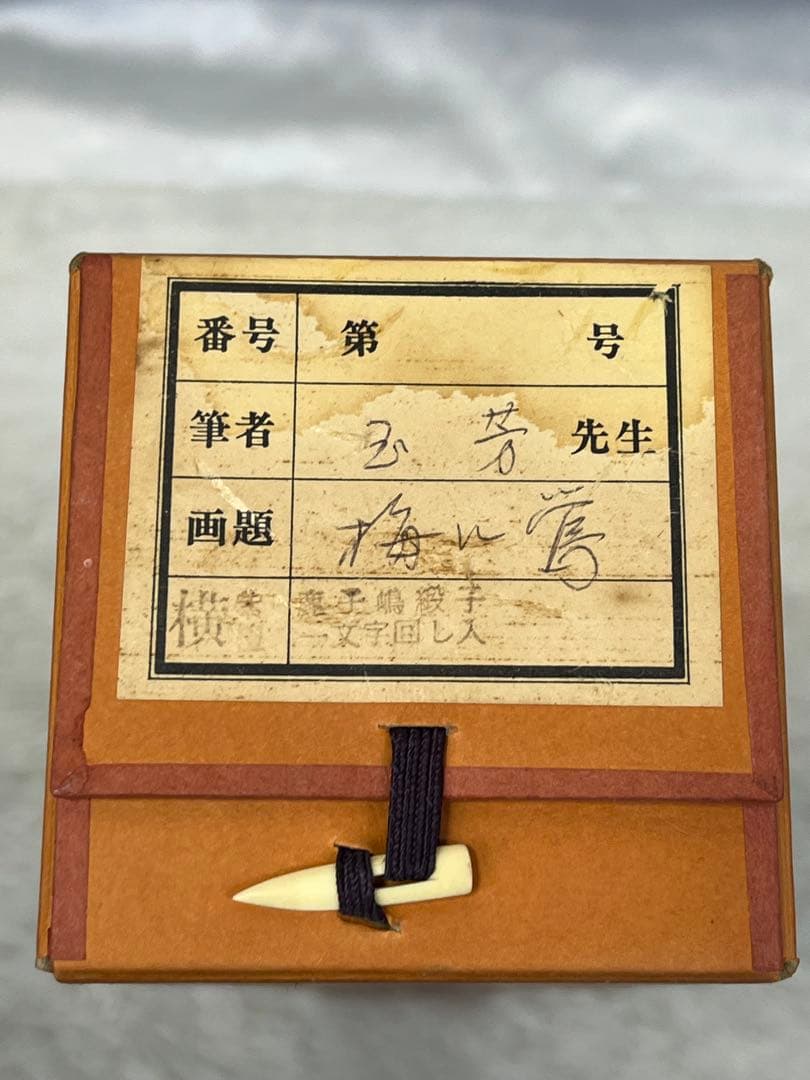 番号 第 号
筆者 玉芳 先生
画題 梅に鶯
横 子嶋緞子
一文字回し入